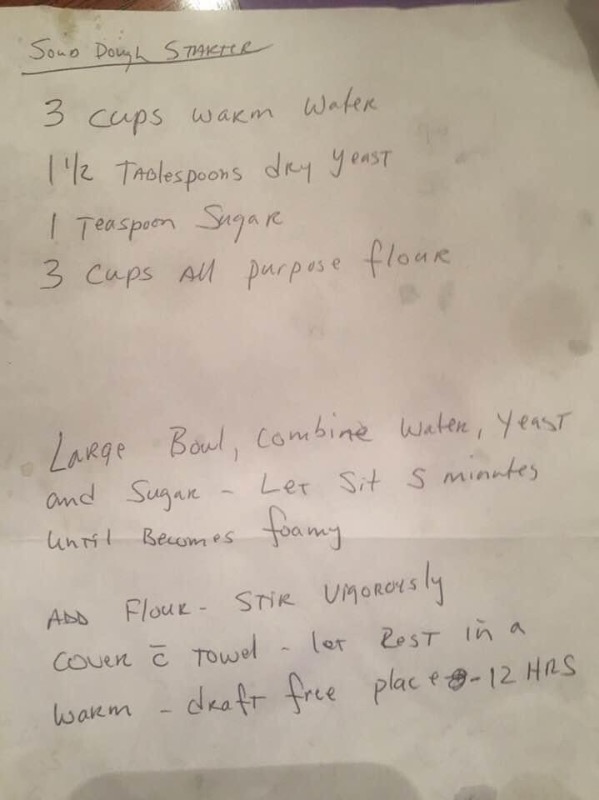 Sour Dough Starter
3 cups warm water
1 1/2 Tablespoons dry yeast
1 Teaspoon Sugar
3 cups All purpose flour
Large Bowl, combine water, yeast
and Sugar - Let Sit 5 minutes
until Becomes foamy
ADD Flour - STIR VIGOROUSLY
cover c̄ towel - let Rest in a
warm - draft free place - 12 HRS